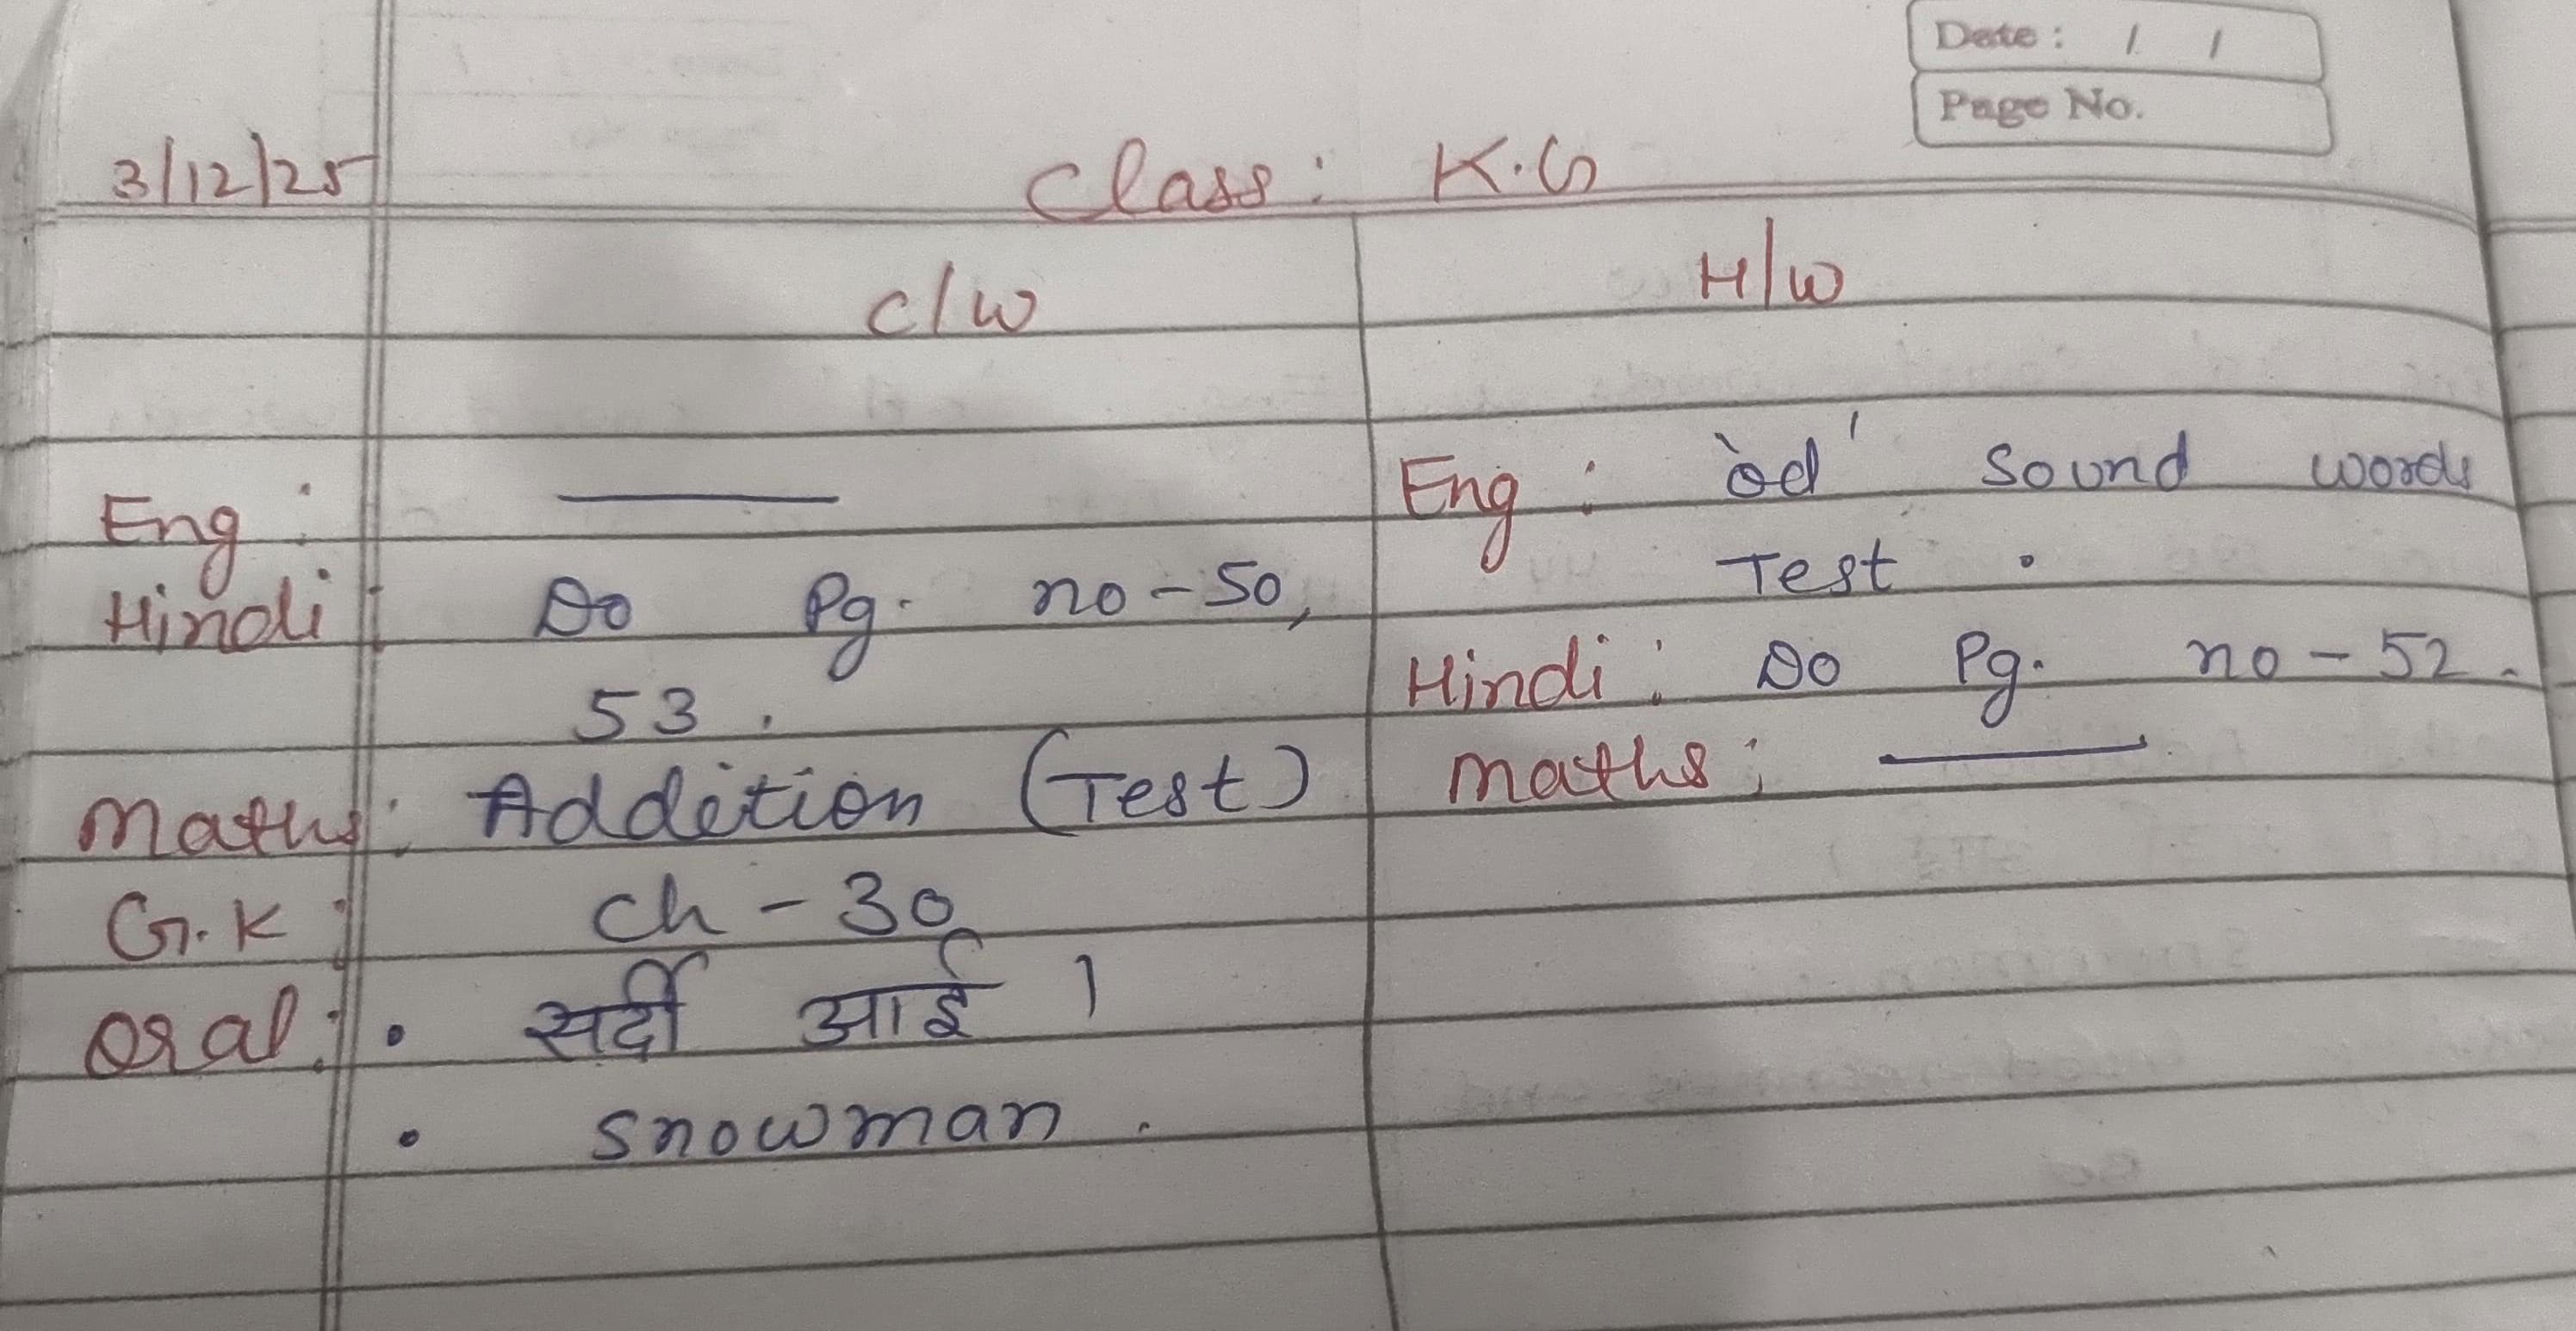 Date : / /
Page No.
3/12/25 Class : K.G
C/W
Eng : ———
Hindi : Do Pg. no - 50,
53.
Maths : Addition (Test)
G.K : Ch - 30
Oral : • सर्दी आई ।
• Snowman.
H/W
Eng : 'od' Sound words
Test .
Hindi : Do Pg. no - 52.
Maths : ———